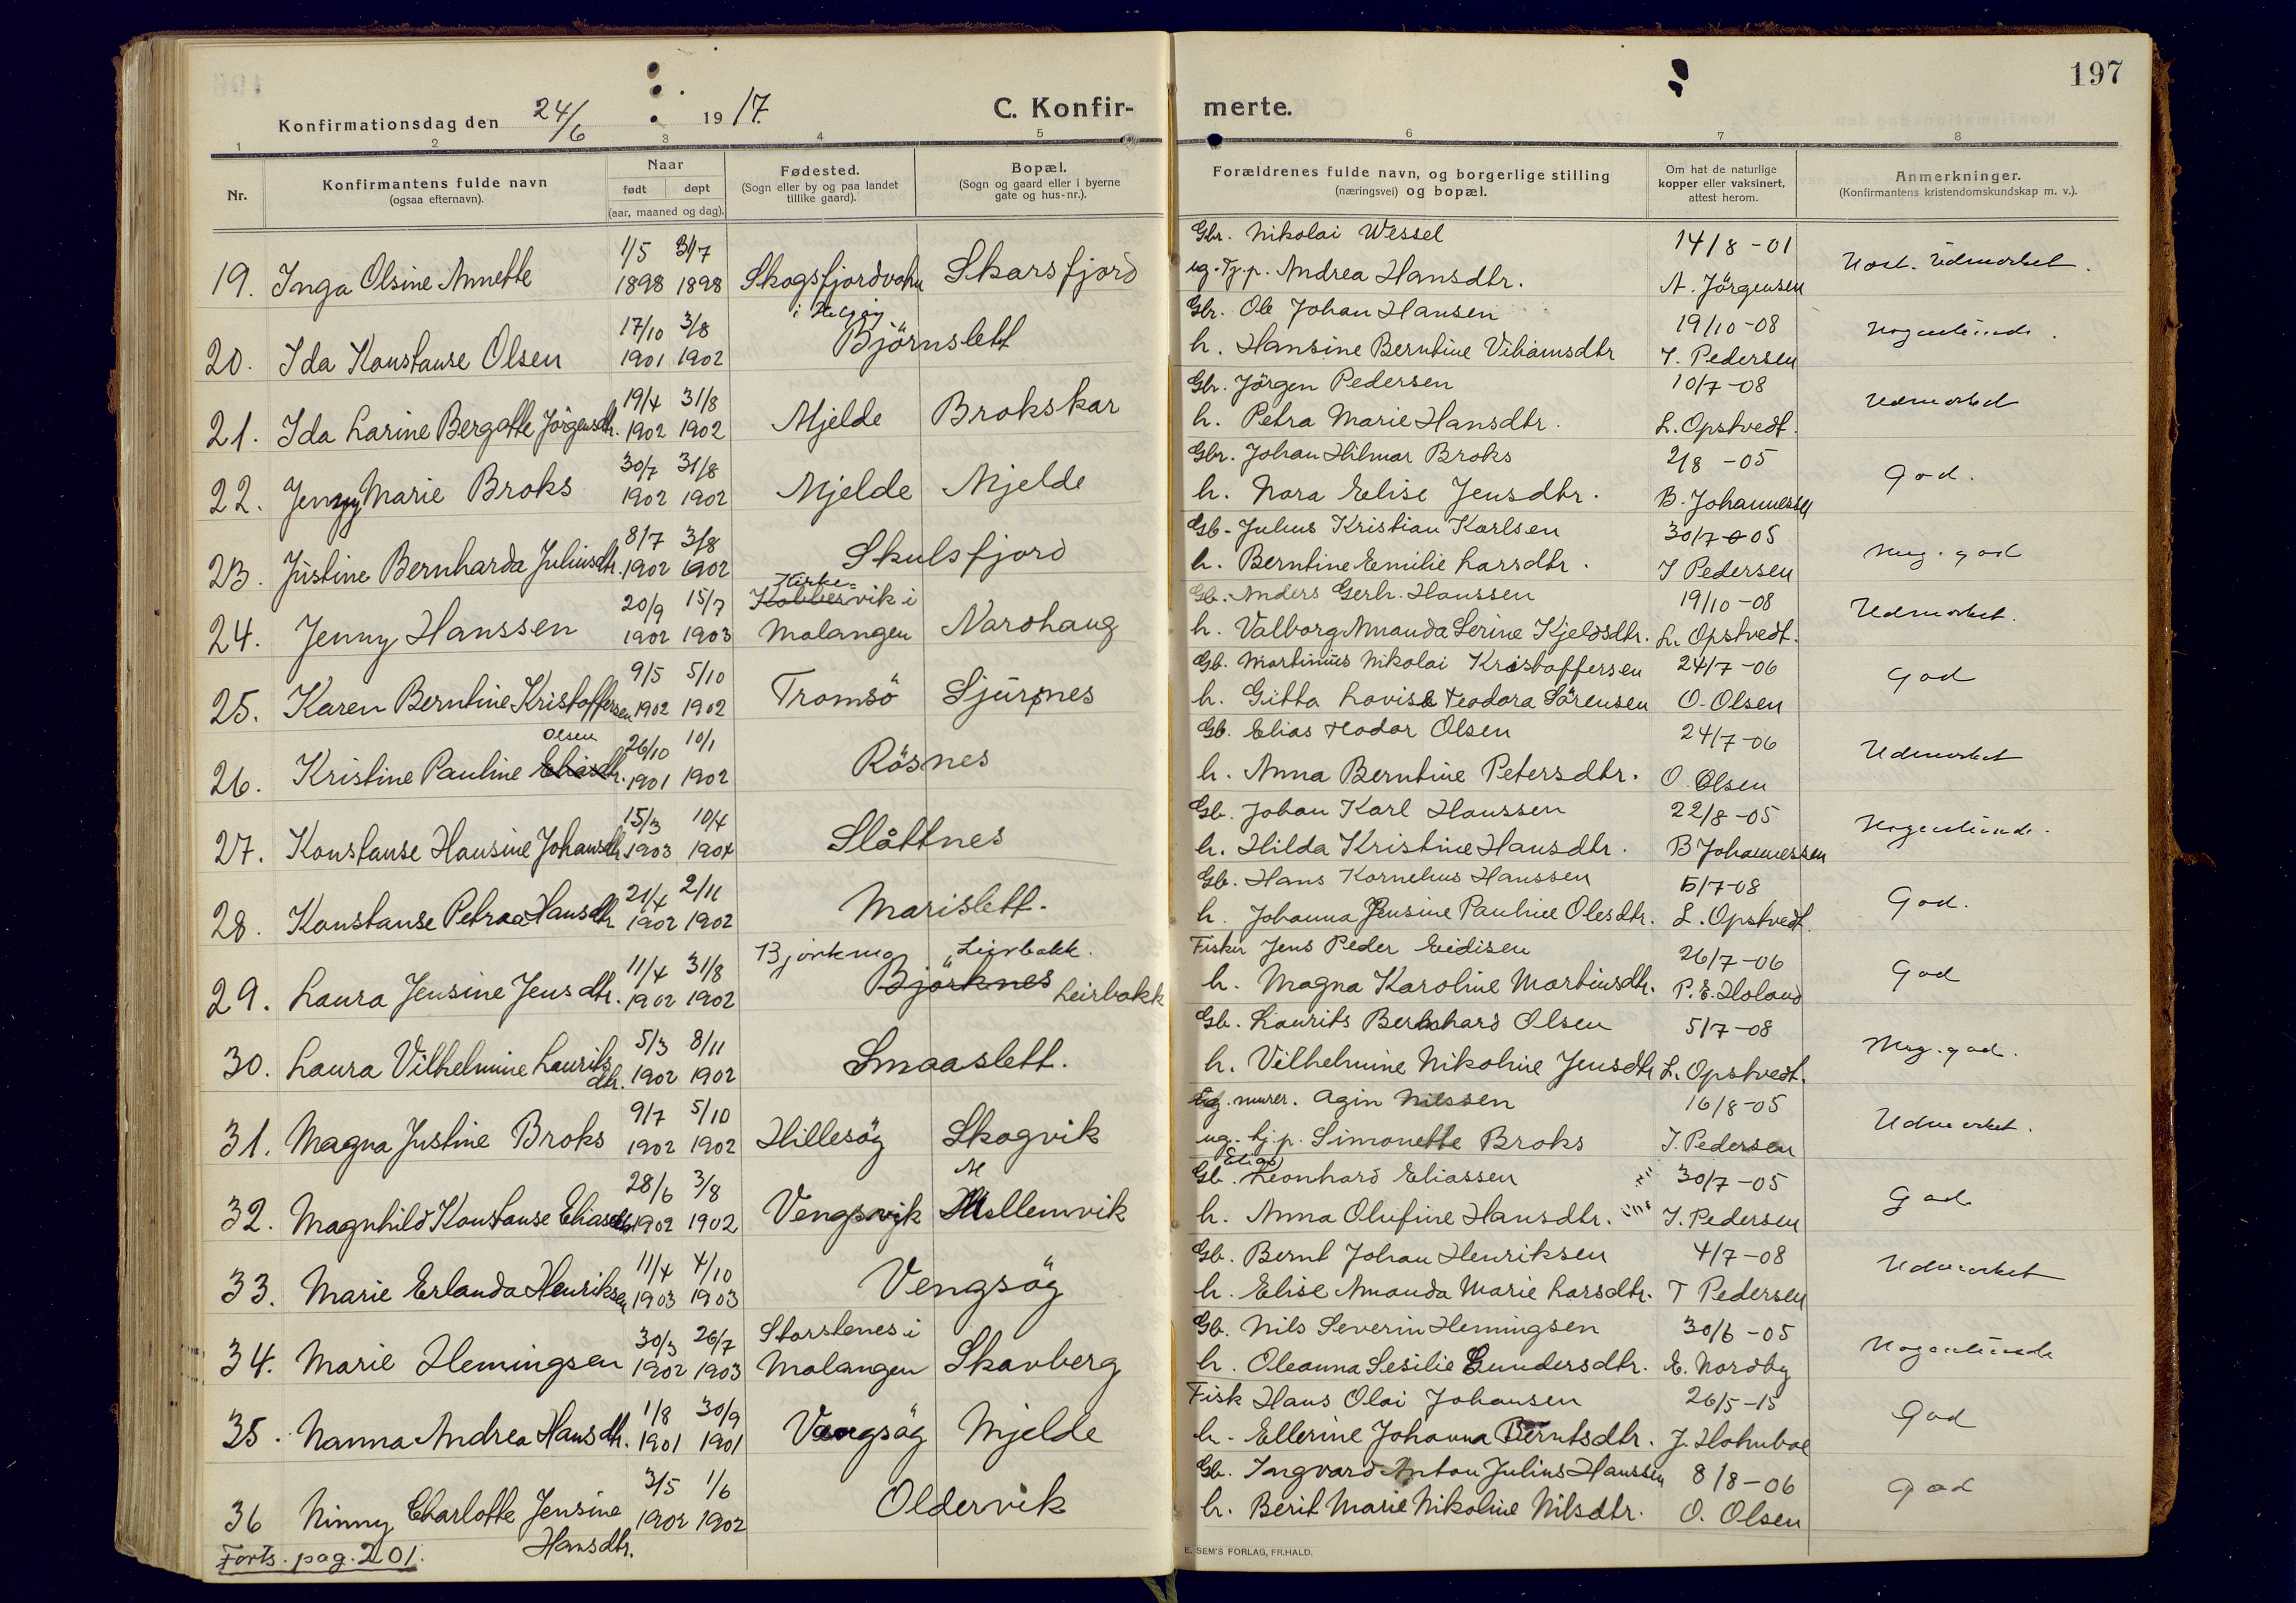 197
Konfirmationsdag den 24/6 1917.
C. Konfir-
merte.
1 2 3 4 5 6 7 8
Nr.
Konfirmantens fulde navn
(ogsaa efternavn).
Naar
født døpt
(aar, maaned og dag).
Fødested.
(Sogn eller by og paa landet
tillike gaard).
Bopæl.
(Sogn og gaard eller i byerne
gate og hus-nr.).
Forældrenes fulde navn, og borgerlige stilling
(næringsvei) og bopæl.
Om hat de naturlige
kopper eller vaksinert,
attest herom.
Anmerkninger.
(Konfirmantens kristendomskundskap m. v.).
1/5 31/7
19. Inga Olsine Annette 1898 1898 Skogsfjordvatn Skarsfjord
i Helgøy
Gbr. Nikolai Wessel 14/8-01
ug. Tj. p. Andrea Hansdtr. A. Jörgensen
Udmerket.
17/10 3/8
20. Ida Konstanse Olsen 1901 1902 Björnslett
Gbr. Ole Johan Hansen 19/10-08
h. Hansine Berntine Vihamsdtr T. Pedersen
Nogenlunde.
19/4 31/8
21. Ida Larine Bergatte Jörgensdtr. 1902 1902 Mjelde Brokskar
Gbr. Jörgen Pedersen 10/7-08
h. Petra Marie Hansdtr. L. Opstvedt.
Udmerket
30/7 31/8
22. Jenny Marie Broks 1902 1902 Mjelde Mjelde
Gbr. Johan Hilmar Broks 2/8-05
h. Nora Elise Jensdtr. B. Johannessen
God.
8/7 3/8
23. Justine Bernharda Juliusdtr. 1902 1902 Skulsfjord
Gb. Julius Kristian Karlsen 30/7-05
h. Berntine Emilie Larsdtr. T Pedersen
Meg. god
20/9 15/7 Kirke-
Kobbervik i
24. Jenny Hanssen 1902 1903 Malangen Narohaug
Gb. Anders Gerh. Hanssen 19/10-08
h. Valborg Amanda Serine Kjeldsdtr. L. Opstvedt.
Udmerket.
9/5 5/10
25. Karen Berntine Kristoffersen 1902 1902 Tromsö Sjursnes
Gb. Martinius Nikolai Kristoffersen 24/7-06
h. Gitta Lovise Teodora Sörensen O. Olsen
God
Olsen 26/10 10/1
26. Kristine Pauline Eliasdtr. 1901 1902 Rösnes
Gb. Elias Teodor Olsen 24/7-06
h. Anna Berntine Petersdtr. O. Olsen
Udmerket
15/3 10/4
27. Konstanse Hansine Johansdtr. 1903 1904 Slåttnes
Gb. Johan Karl Hanssen 22/8-05
h. Hilda Kristine Hansdtr. B Johannessen
Nogenlunde.
21/4 2/11
28. Konstanse Petraa Hansdtr 1902 1902 Marislett.
Gb. Hans Kornelius Hanssen 15/7-08
h. Johanna Jensine Pauline Olesdtr. L. Opstvedt.
God.
11/4 31/8 Björknes, Leirbakk.
29. Laura Jensine Jensdtr. 1902 1902 Björknes Leirbakk
Fisker Jens Peder Eidisen 26/7-06
h. Magna Karoline Martinsdtr. P. E. Holand
God
5/3 8/11
30. Laura Vilhelmine Laurits
dtr. 1902 1902 Smaaslett.
Gb. Laurits Bernhard Olsen 5/7-08
h. Vilhelmine Nikoline Jensdtr L. Opstvedt.
Meg. god.
9/7 5/10
31. Magna Justine Broks 1902 1902 Hillesöy Skogvik
Ug. murer. Agin Nilssen 16/8-05
ug. tj. p. Simonette Broks T. Pedersen
Udmerket.
28/6 3/8 M
32. Magnhild Konstanse Eliasdtr 1902 1902 Vengsvik Mellemvik
Elias
Gb. Leonhard Eliassen 30/7-05
h. Anna Olufine Hansdtr. T. Pedersen
God
11/4 4/10
33. Marie Erlanda Henriksen 1903 1903 Vengsöy
Gb. Bernt Johan Henriksen 4/7-08
h. Elise Amanda Marie Larsdtr. T Pedersen
Udmerket
30/3 26/7 Storstenes i
34. Marie Hemingsen 1902 1903 Malangen Skavberg
Gb. Nils Severin Hemingsen 30/6-05
h. Oleanna Sesilie Gundersdtr. E. Nordby
Nogenlunde
1/8 30/9
35. Nanna Andrea Hansdtr. 1901 1901 Vengsöy Mjelde
Fisk Hans Olai Johansen 26/5-15
h. Ellerine Johanna Berntsdtr. J. Holmboe
God
3/5 1/6
36 Ninny Charlotte Jensine 1902 1902 Oldervik
Hansdtr.
Gb. Ingvard Anton Julius Hanssen 8/8-06
h. Berit Marie Nikoline Nilsdtr. O. Olsen
God
Forts. pag. 201.
E. SEM'S FORLAG, FR.HALD.